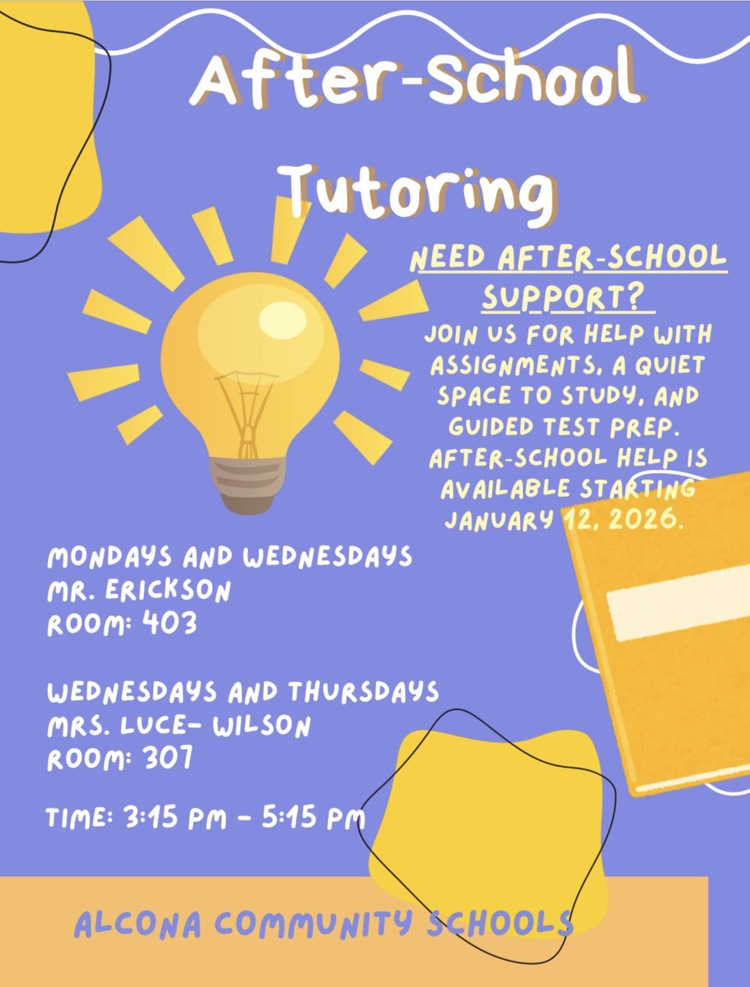 After-School
Tutoring
NEED AFTER-SCHOOL
SUPPORT?
JOIN US FOR HELP WITH
ASSIGNMENTS, A QUIET
SPACE TO STUDY, AND
GUIDED TEST PREP.
AFTER-SCHOOL HELP IS
AVAILABLE STARTING
JANUARY 12, 2026.
MONDAYS AND WEDNESDAYS
MR. ERICKSON
ROOM: 403
WEDNESDAYS AND THURSDAYS
MRS. LUCE- WILSON
ROOM: 307
TIME: 3:15 PM - 5:15 PM
ALCONA COMMUNITY SCHOOLS